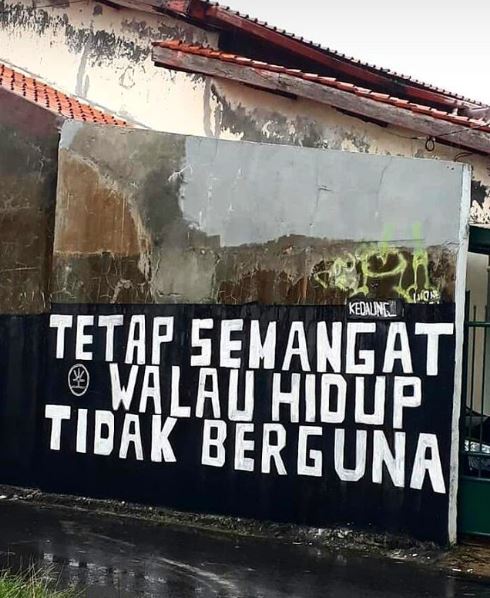 KEDAUNG
TETAP SEMANGAT
WALAU HIDUP
TIDAK BERGUNA